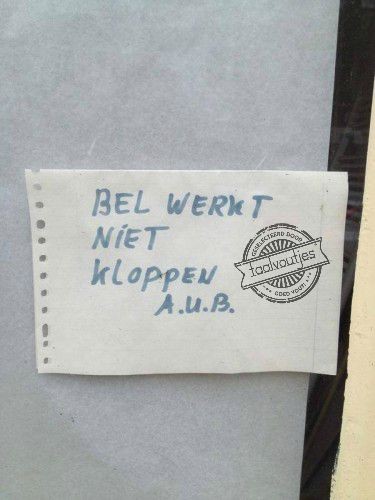 BEL WERKT
NIET
KLOPPEN
A.U.B.
GESELECTEERD DOOR
taalvoutjes
GOED VOUT!